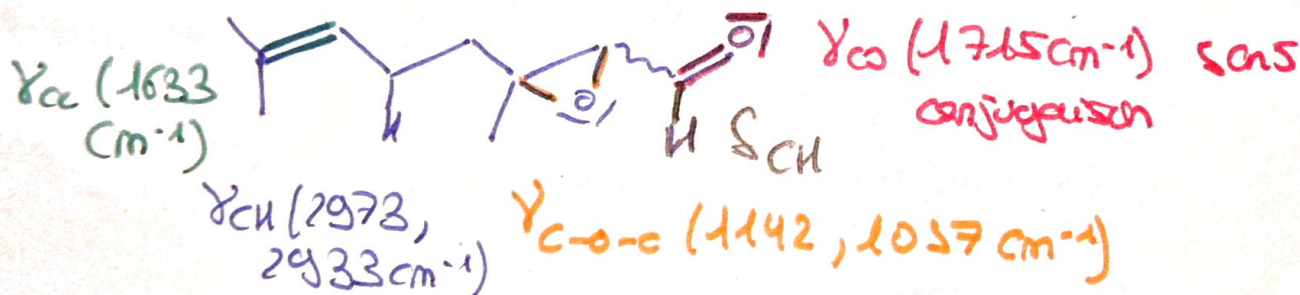 γcc (1633
cm-1)
O
H
O
H
δCH
γco (1715cm-1) sans
conjugaison
γCH (2973,
2933cm-1)
γC-O-C (1142, 1057 cm-1)